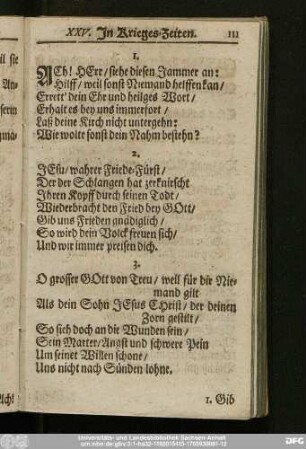 XXV. In Krieges-Zeiten. 111
1.
ACh! HErr/ siehe diesen Jammer an:
Hilff/ weil sonst Niemand helffen kan/
Errett' dein Ehr und heilges Wort/
Erhalt es bey uns immerfort/
Laß deine Kirch nicht untergehn:
Wie wolte sonst dein Nahm bestehn?
2.
JEsu/ wahrer Friede-Fürst/
Der der Schlangen hat zerknirscht
Ihren Kopff durch seinen Todt/
Wiederbracht den Fried bey GOtt/
Gib uns Frieden gnädiglich/
So wird dein Volck freuen sich/
Und wir immer preisen dich.
3.
O grosser GOtt von Treu/ weil für dir Nie-
mand gilt
Als dein Sohn JEsus CHrist/ der deinen
Zorn gestilt/
So sieh doch an die Wunden sein/
Sein Marter/ Angst und schwere Pein
Um seinet Willen schone/
Uns nicht nach Sünden lohne.
1. Gib
Universitäts- und Landesbibliothek Sachsen-Anhalt